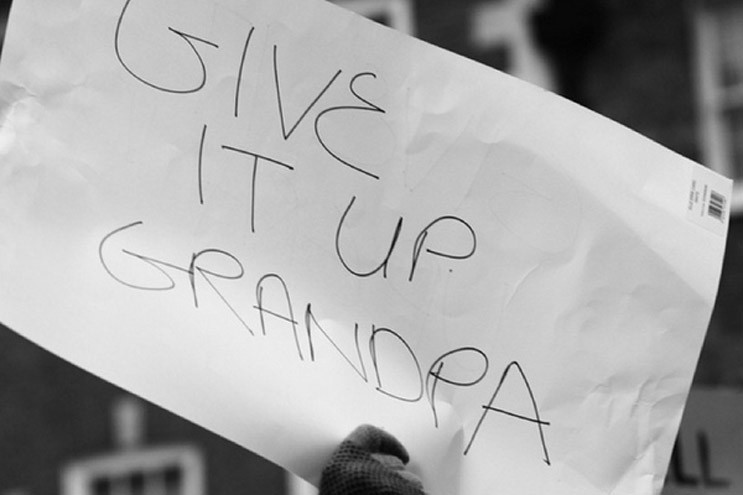 GIVE
IT UP
GRANDPA
LL